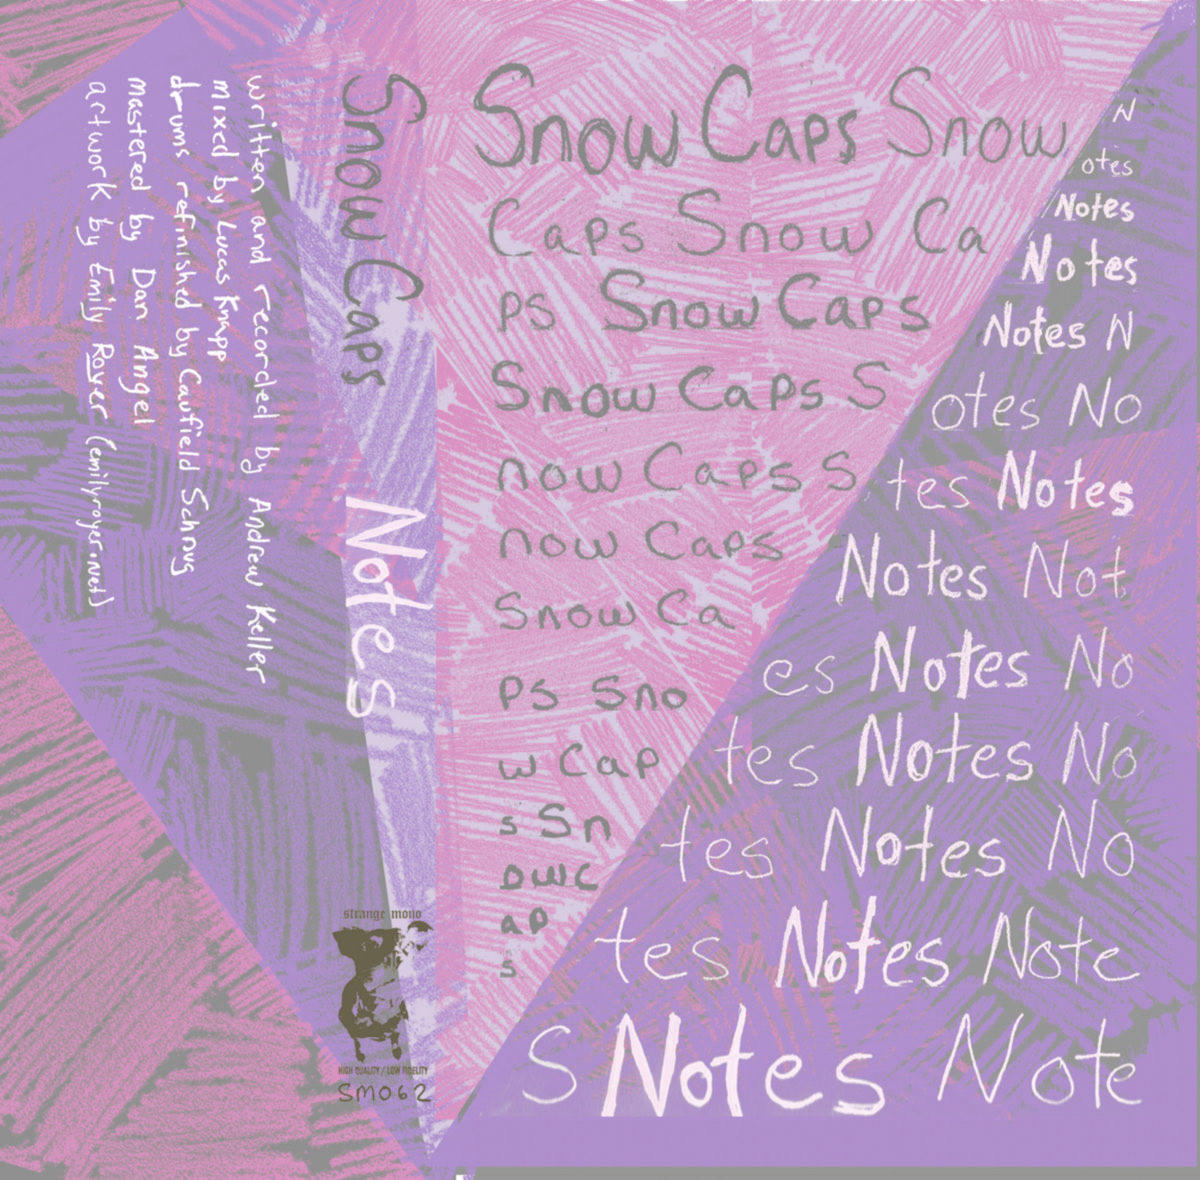 written and recorded by Andrew Keller
mixed by Lucas Knapp
drums refinished by Caufield Schnug
mastered by Dan Angel
artwork by Emily Royer (emilyroyer.net)
Snow Caps Notes
strange mono
HIGH QUALITY / LOW FIDELITY
SM062
Snow Caps Snow
Caps Snow Ca
ps Snow Caps
Snow Caps S
now Caps S
now Caps
Snow Ca
ps Sno
w Cap
s Sn
owc
ap
s
N
otes
Notes
Notes
Notes N
otes No
tes Notes
Notes Not
es Notes No
tes Notes No
tes Notes No
tes Notes Note
s Notes Note